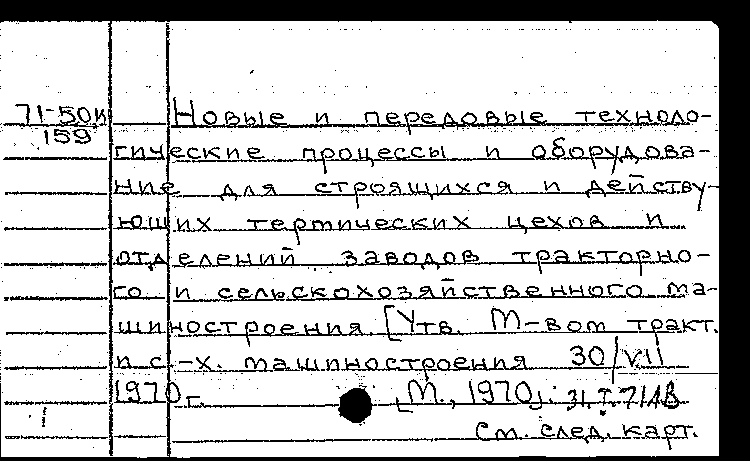 71-50к Новые и передовые техноло-
159
гические процессы и оборудова-
ние для строящихся и действу-
ющих термических цехов и
отделений заводов тракторно-
го и сельскохозяйственного ма-
шиностроения. [Утв. М-вом тракт.
и с.-х. машиностроения 30/VII
1970г. [М., 1970].
См. след. карт.